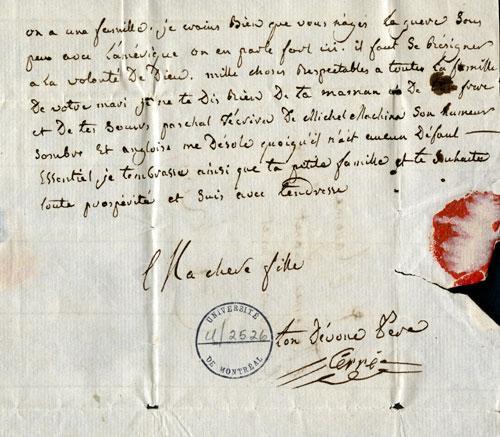 on a une famille. je crains Bien que vous n'ayés La guere Sous
peu avec L'amérique on en parle fort ici. il faut Se Résigner
a La volonté De Dieu. mille choses Respectables a toutes La famille
De votre mari je ne te Dis Rien De ta maman De frere
et De tes Soeurs paschal t'écrira De Michel Machina Son humeur
Sombre Et angloise me Desole quoiqu'il n'ait aucun Défaut —
Essentiel, je t'embrasse ainsi que ta petite famille et te Souhaite
toute prospérité et Suis avec tendresse
Ma chere fille
ton Dévoué Pere
Cerré
UNIVERSITÉ
U/2526
DE MONTRÉAL